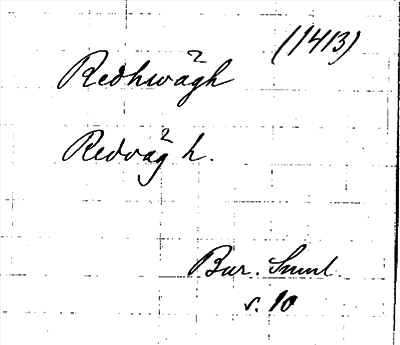 (1413)
Redhwågh
Redvåg h.
Bur. Suml.
s. 10